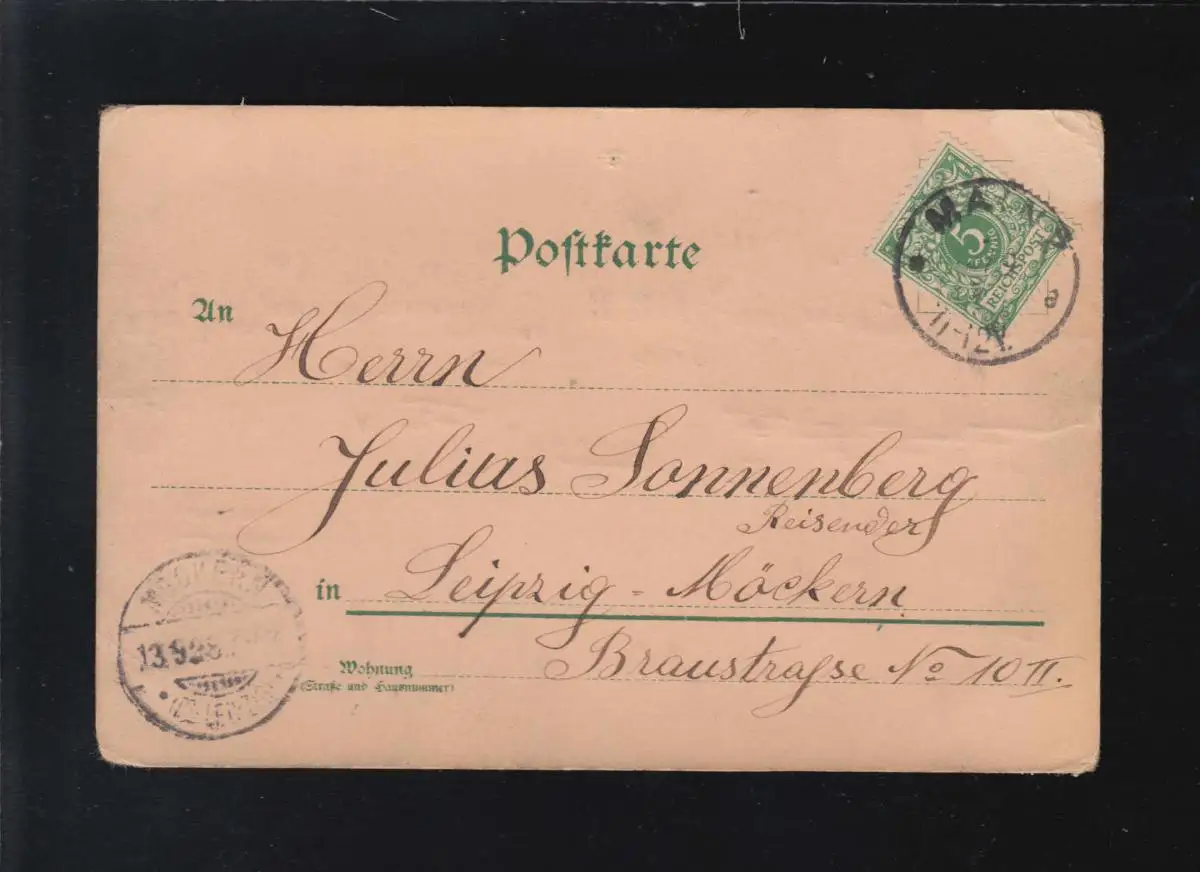 Postkarte
MAINZ
5
PFENNIG
REICHSPOST
a
11-12V.
An Herrn
Julius Sonnenberg
Reisender
in Leipzig - Möckern
Wohnung
(Straße und Hausnummer)
Braustrasse No 10 II.
MÖCKERN
13.9.98.
(BZ. LEIPZIG)